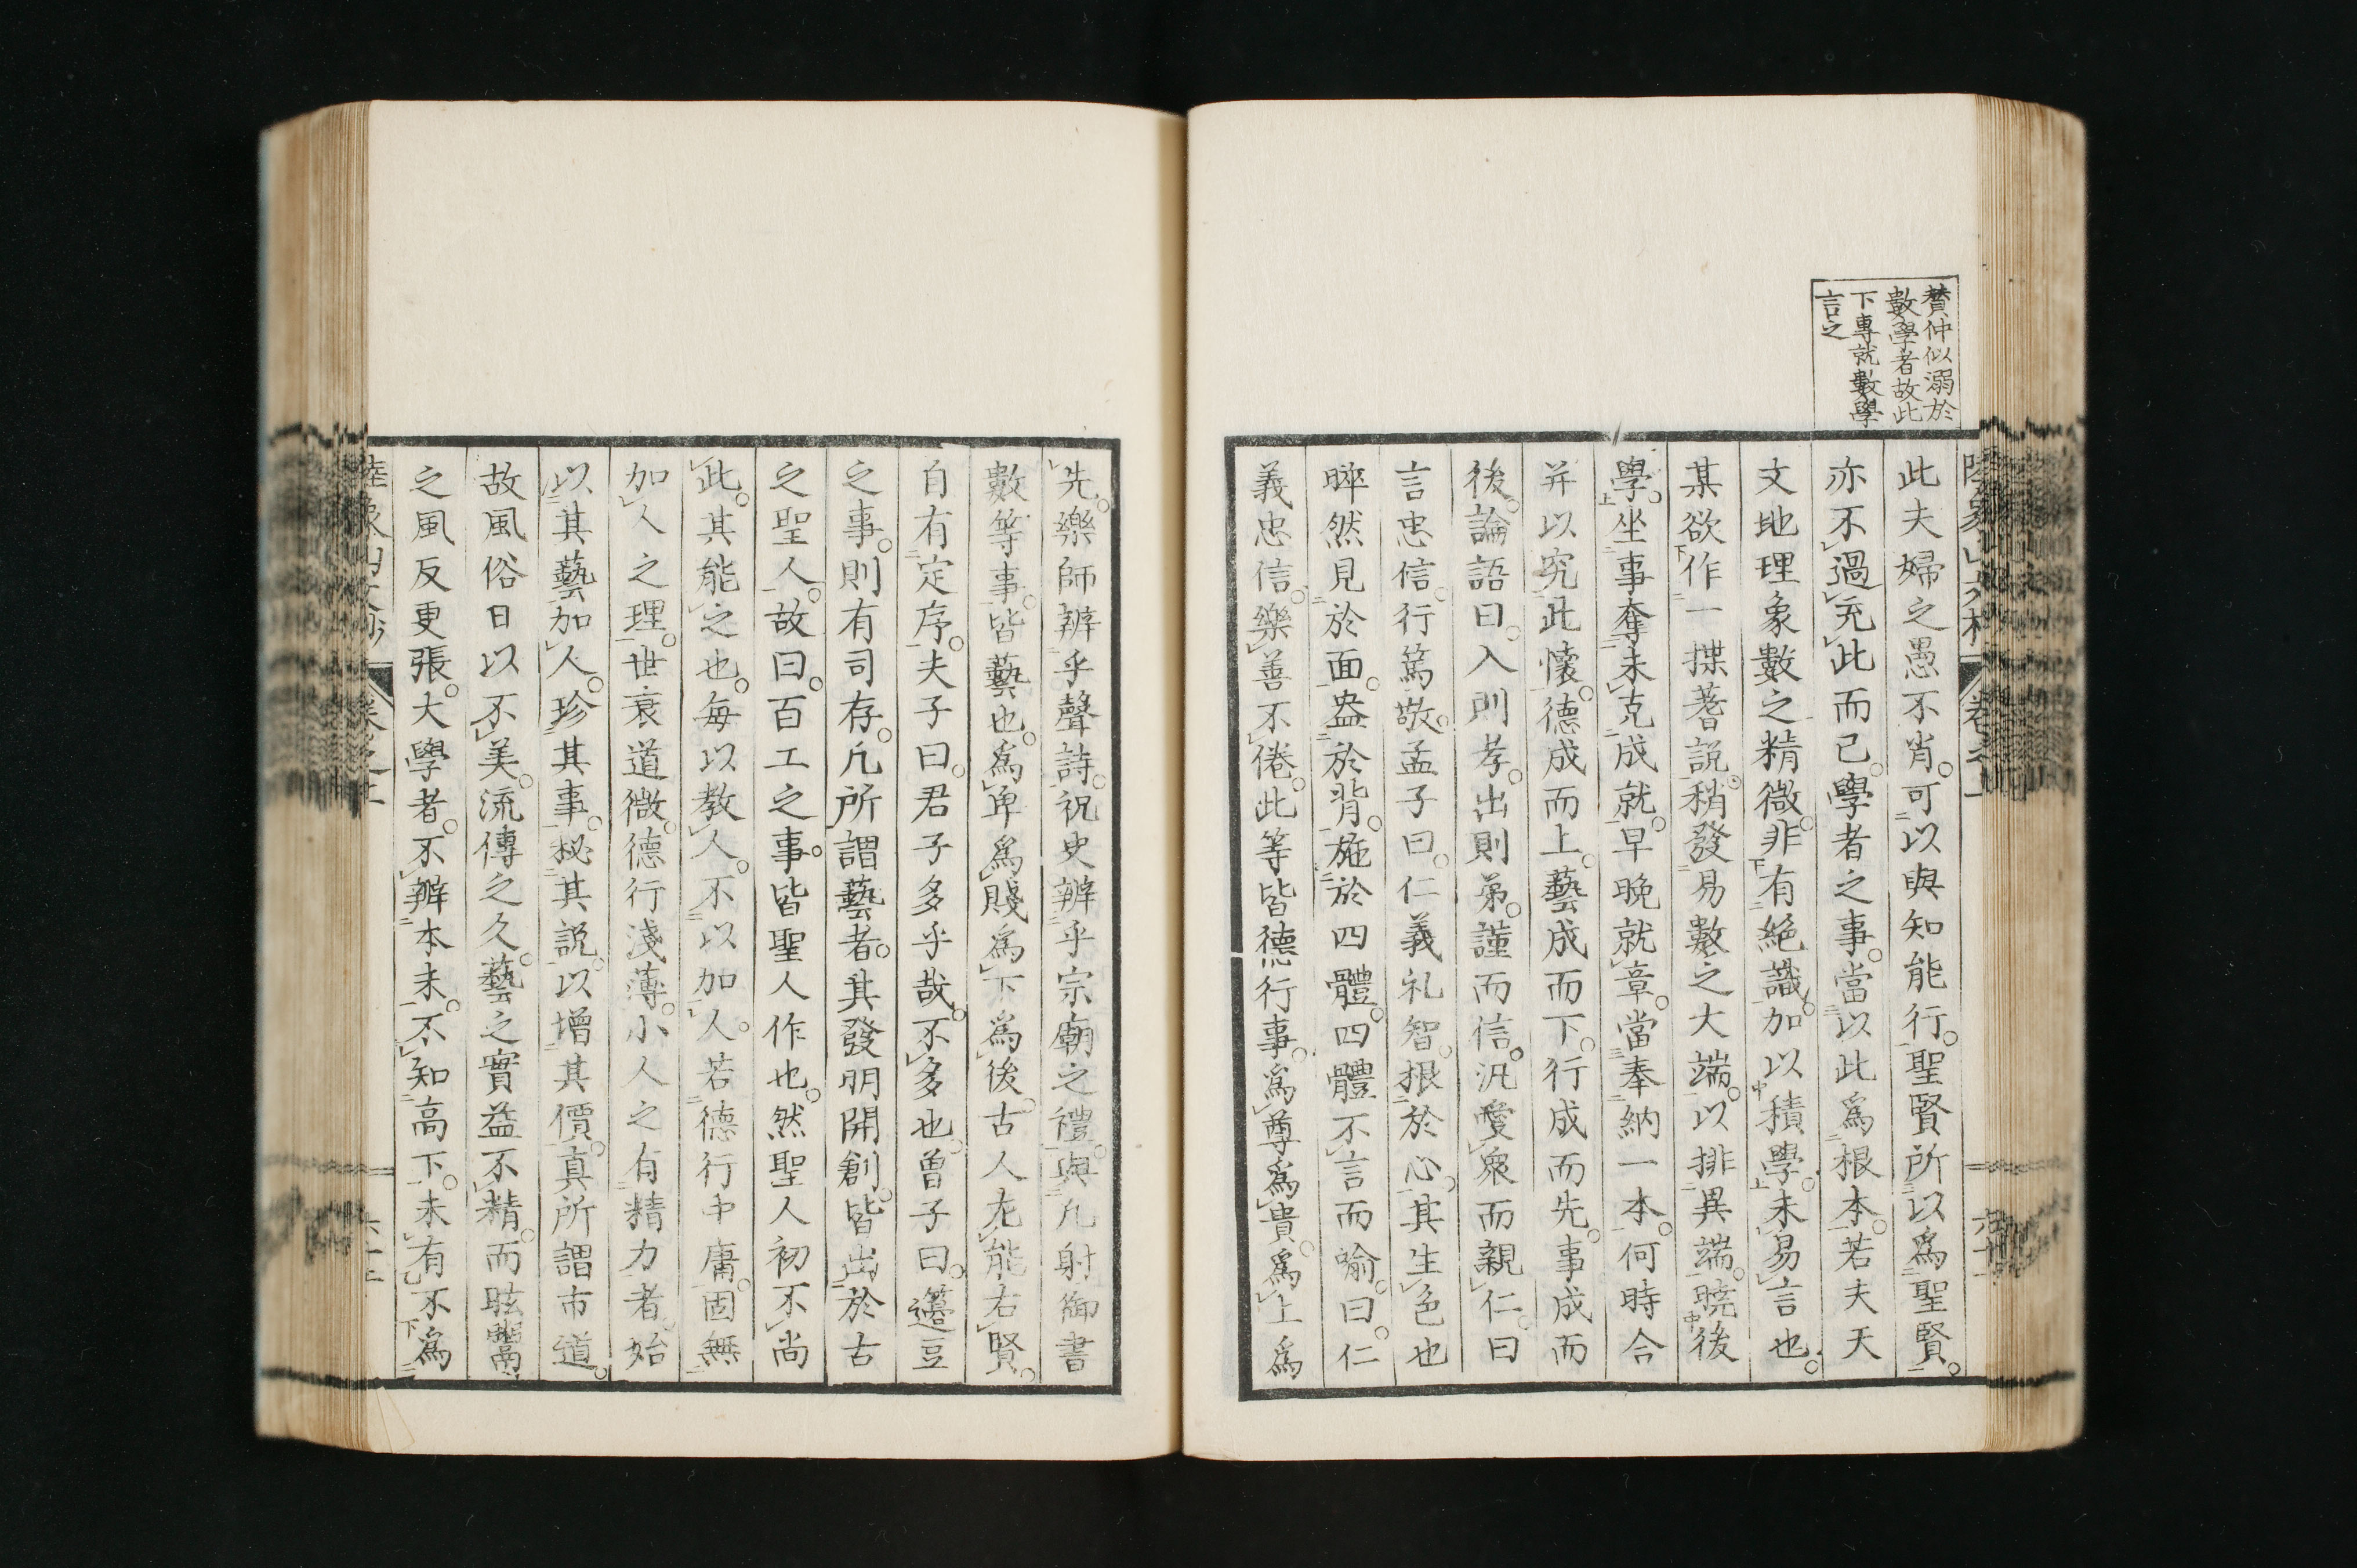 賛仲似溺於
數學者故此
下專就數學
言之
此夫婦之愚不肖。可以與知能行。聖賢所以爲聖賢。
亦不過充此而已。學者之事。當以此爲根本。若夫天
文地理象數之精微。非有絶識。加以積學。未易言也。
某欲作一揲蓍説。稍發易數之大端。以排異端。曉後
學。坐事奪未克成就。早晩就章。當奉納一本。何時合
并以究此懷。德成而上。藝成而下。行成而先。事成而
後。論語曰。入則孝。出則弟。謹而信。汎愛衆而親仁。曰
言忠信。行篤敬。孟子曰。仁義礼智。根於心。其生色也
睟然見於面。盎於背。施於四體。四體不言而喩。曰。仁
義忠信。樂善不倦。此等皆德行事。爲尊爲貴。爲上爲
先。樂師辨乎聲詩。祝史辨乎宗廟之禮。與凡射御書
數等事。皆藝也。爲卑爲賤爲下爲後。古人左能右賢。
自有定序。夫子曰。君子多乎哉。不多也。曾子曰。籩豆
之事。則有司存。凡所謂藝者。其發明開創。皆出於古
之聖人。故曰。百工之事。皆聖人作也。然聖人初不尚
此。其能之也。毎以教人。不以加人。若德行中庸。固無
加人之理。世衰道微。德行淺薄。小人之有精力者。始
以其藝加人。珍其事。秘其説。以増其價。真所謂市道。
故風俗日以不美。流傳之久。藝之實益不精。而眩鬻
之風反更張。大學者。不辨本末。不知高下。未有不爲